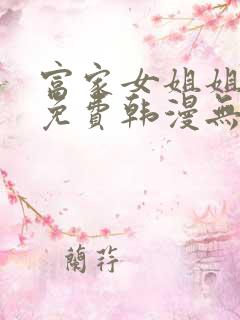 富家女姐姐
免費韩漫無
蘭莊